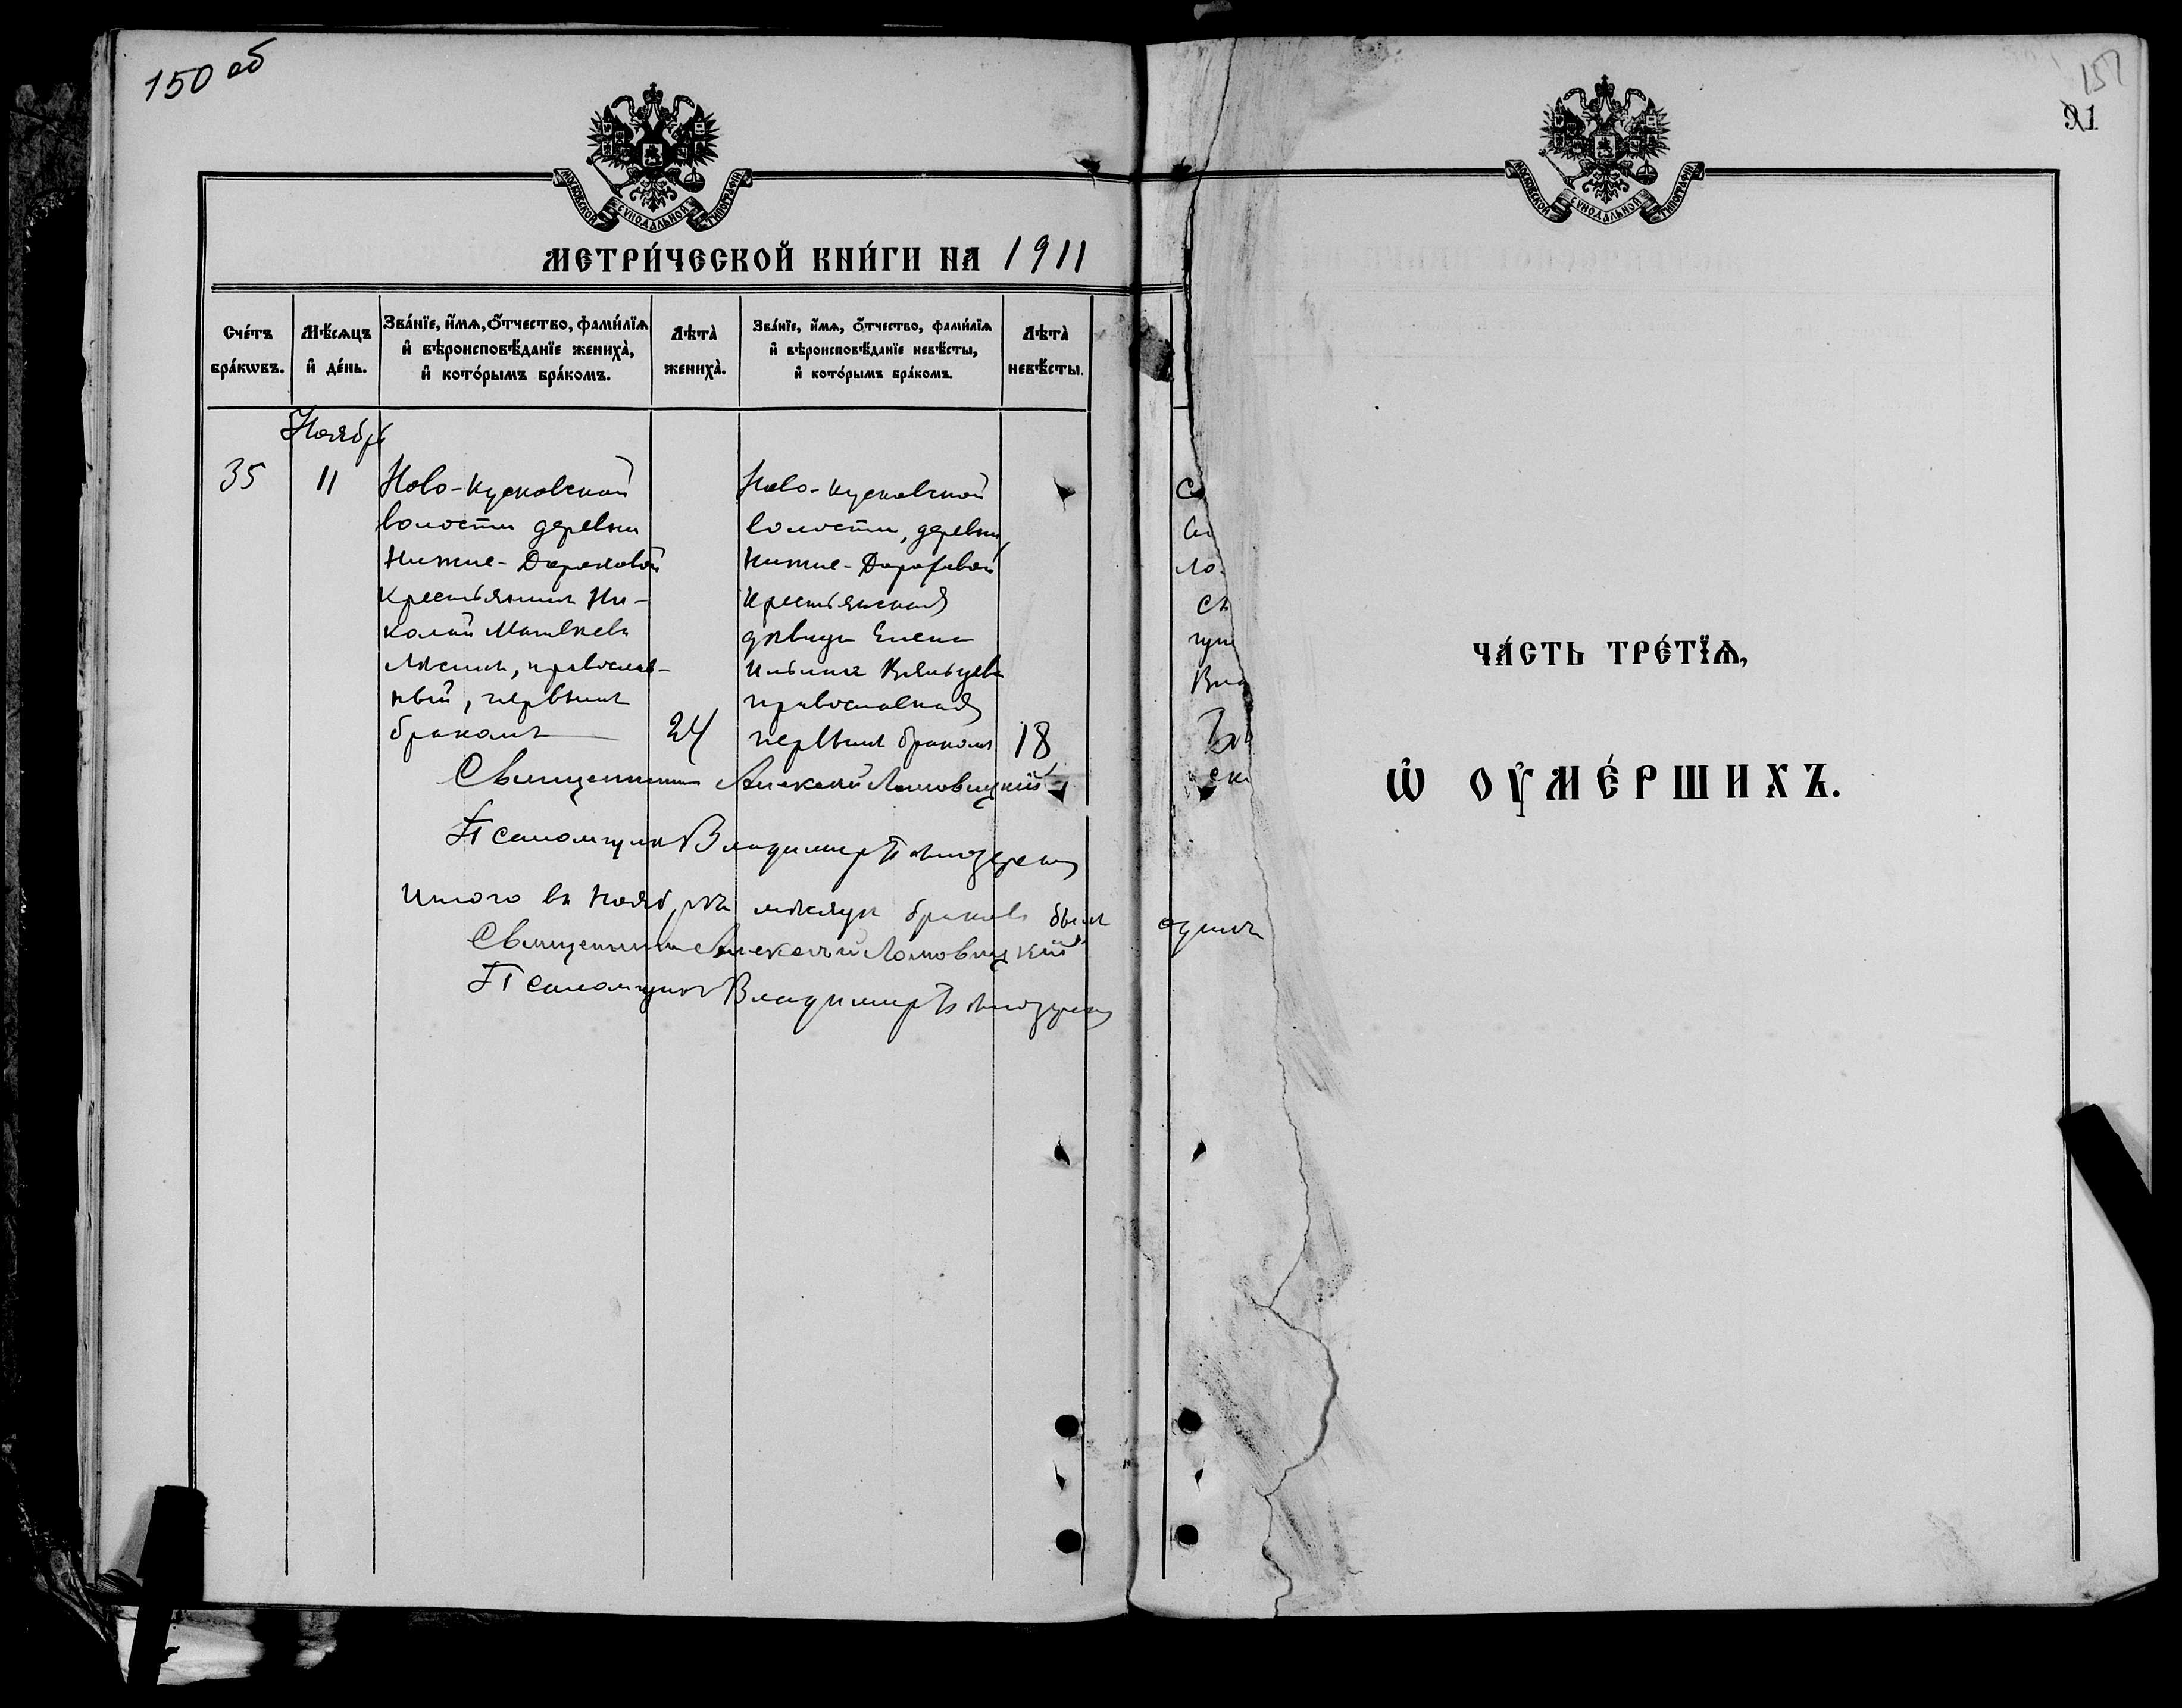 150 об
МОСКОВСКОЙ СѴНОДАЛЬНОЙ ТИПОГРАФІИ
МЕТРИ́ЧЕСКОЙ КНИ́ГИ НА 1911
Сче́тъ бра́кѡвъ.
Мѣ́сѧцъ и҆ де́нь.
Зва́нїе, и҆́мѧ, ѻ҆́тчество, фами́лїѧ
и҆ вѣроисповѣ́данїе жениха̀,
и҆ кото́рымъ бра́комъ.
Лѣта̀ жениха̀.
Зва́нїе, и҆́мѧ, ѻ҆́тчество, фами́лїѧ
и҆ вѣроисповѣ́данїе невѣ́сты,
и҆ кото́рымъ бра́комъ.
Лѣта̀ невѣ́сты.
Ноябрь
35
11
Ново-Кусковской
волости деревни
Нижне-
Крестьянинъ Ни-
колай Матвѣевъ
православ-
ный, первымъ
бракомъ
24
Ново-Кусковской
волости, деревни
Нижне-
Крестьянская
дѣвица Елена
Ильина
православная
первымъ бракомъ
18
Священникъ Алексѣй Ломовицкій
Псаломщикъ Владимиръ
Итого въ Ноябрѣ мѣсяцѣ браковъ былъ одинъ
Священникъ Алексѣй Ломовицкій
Псаломщикъ Владимиръ
151
91
МОСКОВСКОЙ СѴНОДАЛЬНОЙ ТИПОГРАФІИ
ЧА́СТЬ ТРЕ́ТЇѦ,
Ѡ҆ ОУ҆МЕ́РШИХЪ.